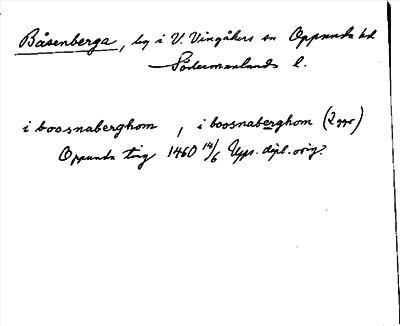 Båsenberga, by i V. Vingåkers sn Oppunda hd
Södermanlands l.
i boosnaberghom , i boosnaberghom (2 ggr)
Oppunda ting 1460 14/6 Upps. dipl. orig.